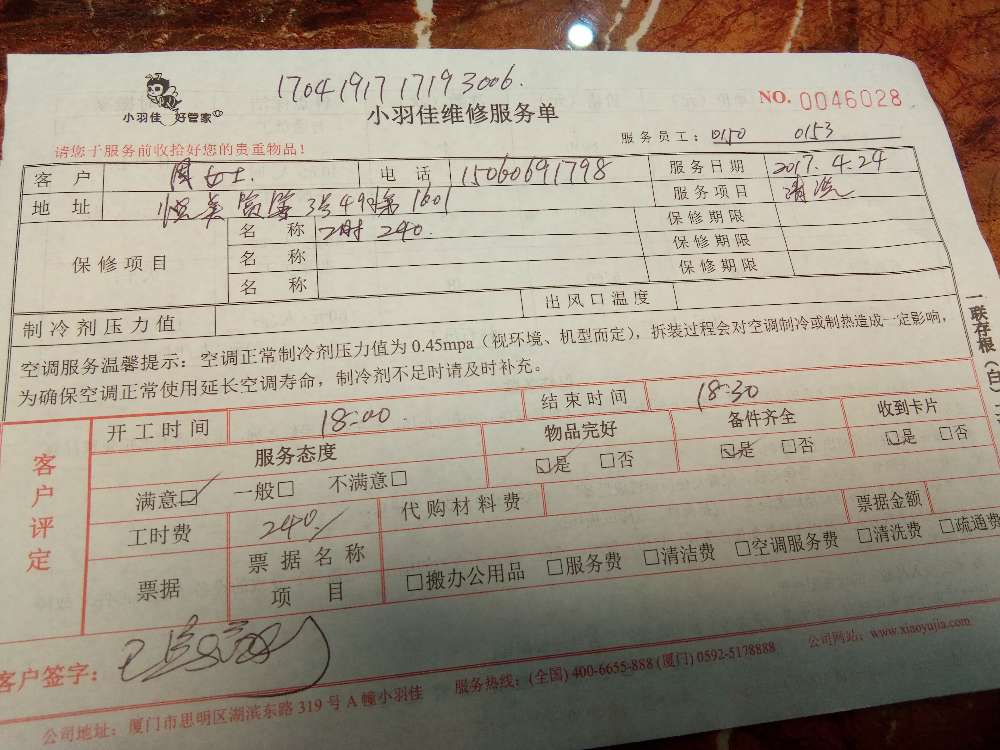 1704191717193006.
小羽佳 好管家
小羽佳维修服务单
NO. 0046028
请您于服务前收拾好您的贵重物品！
服务员工：0150 0153
客户 女士. 电话 15060691798 服务日期 2017.4.24
地址 3号 1601 服务项目 清洗
保修项目 名称 240. 保修期限
名称 保修期限
名称 保修期限
制冷剂压力值 出风口温度
空调服务温馨提示：空调正常制冷剂压力值为 0.45mpa（视环境、机型而定），拆装过程会对空调制冷或制热造成一定影响，
为确保空调正常使用延长空调寿命，制冷剂不足时请及时补充。
一联存根（白）
客户评定
开工时间 18:00 结束时间 18:30
服务态度 物品完好 备件齐全 收到卡片
满意☑ 一般□ 不满意□ ☑是 □否 ☑是 □否 ☑是 □否
工时费 240/ 代购材料费 票据金额
票据 票据名称
项目 □搬办公用品 □服务费 □清洁费 □空调服务费 □清洗费 □疏通费
客户签字：
公司地址：厦门市思明区湖滨东路 319 号 A 幢小羽佳 服务热线：(全国) 400-6655-888 (厦门) 0592-5178888 公司网站：www.xiaoyujia.com